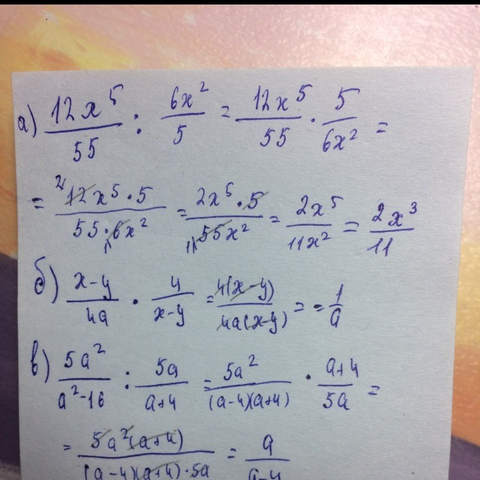 а) 12x⁵/55 : 6x²/5 = 12x⁵/55 · 5/6x² =
= 12x⁵·5/55·6x² = 2x⁵·5/55x² = 2x⁵/11x² = 2x³/11
б) x-y/4a · 4/x-y = 4(x-y)/4a(x-y) = = 1/a
в) 5a²/a²-16 : 5a/a+4 = 5a²/(a-4)(a+4) · a+4/5a =
= 5a²(a+4)/(a-4)(a+4)·5a = a/a-4